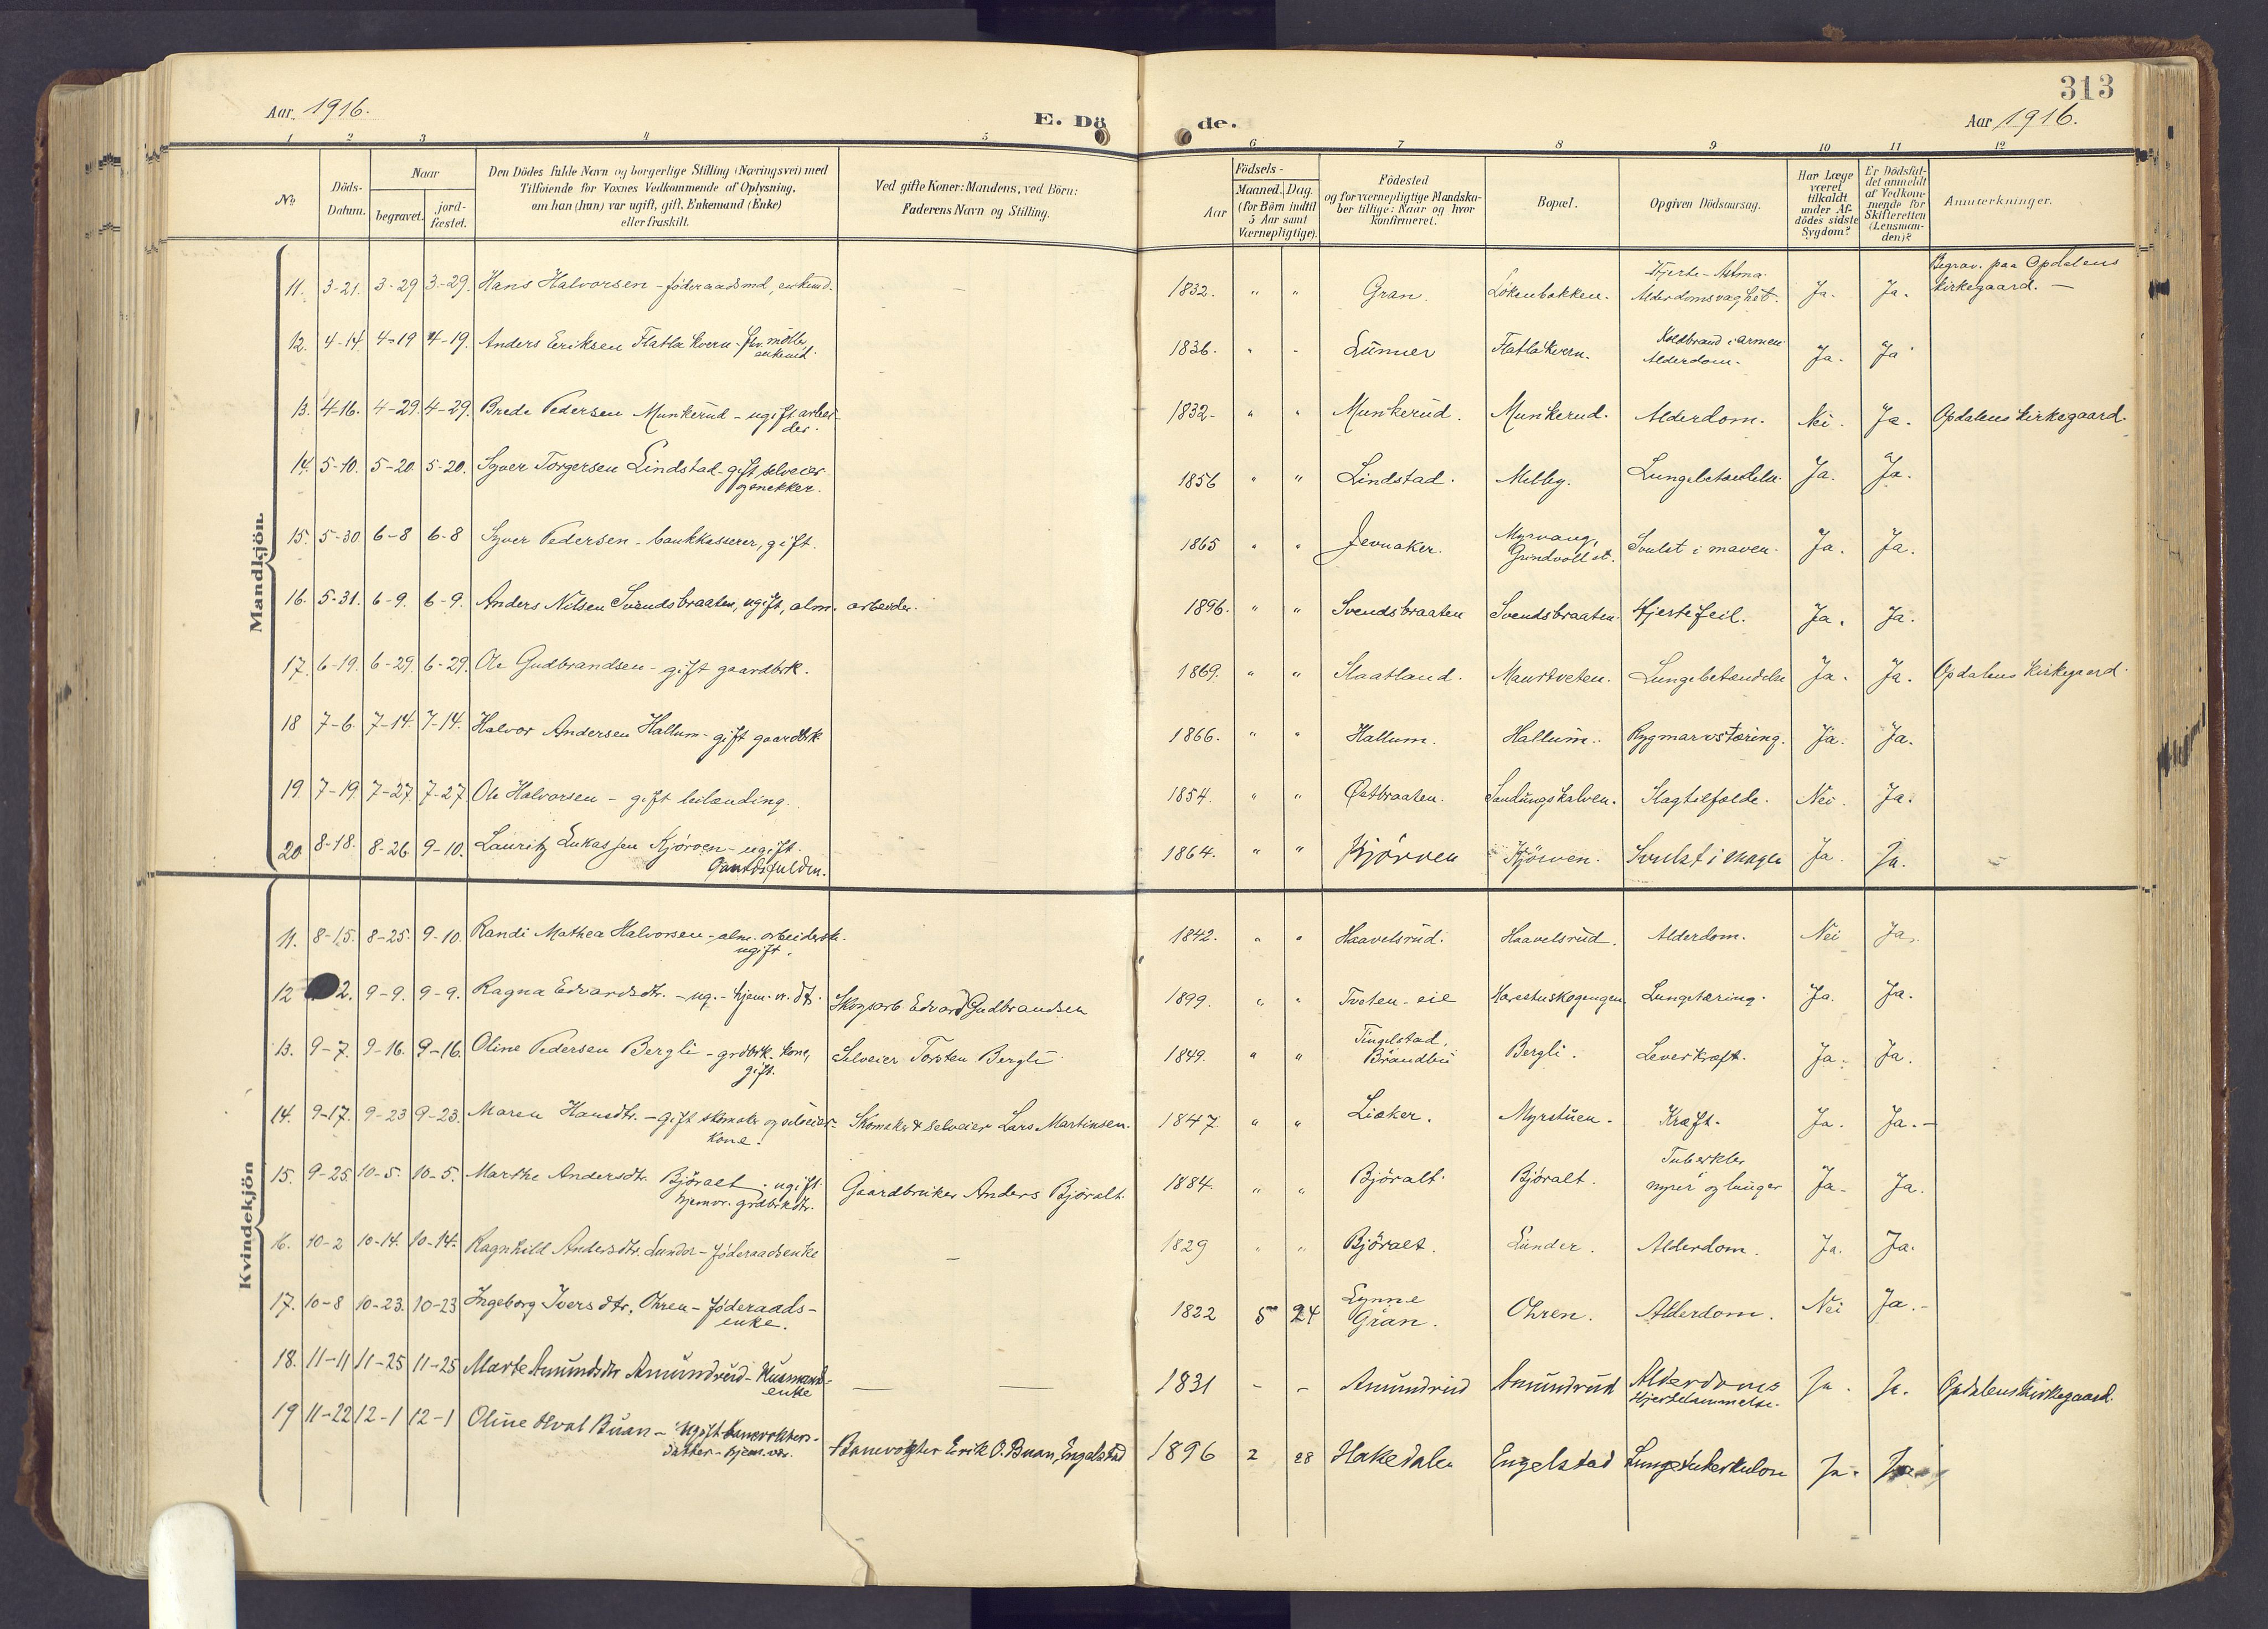 313
Aar 1916.
E. Dö de.
Aar 1916.
1 2 3 4 5 6 7 8 9 10 11 12
No
Döds-
Datum.
Naar
begravet.
jord-
fæstet.
Den Dödes fulde Navn og borgerlige Stilling (Næringsvei) med
Tilföiende for Voxnes Vedkommende af Oplysning,
om han (hun) var ugift, gift, Enkemand (Enke)
eller fraskilt.
Ved gifte Koner: Mandens, ved Börn:
Faderens Navn og Stilling.
Födsels-
Aar
Maaned. Dag.
(for Börn indtil
5 Aar samt
Værnepligtige).
Födested
og for værnepligtige Mandska-
ber tillige: Naar og hvor
konfirmeret.
Bopæl.
Opgiven Dödsaarsag.
Har Læge
været
tilkaldt
under Af-
dödes sidste
Sygdom?
Er Dödsfal-
det anmeldt
af Vedkom-
mende for
Skifteretten
(Lensman-
den)?
Anmærkninger.
Mandkjön.
11. 3-21. 3-29 3-29. Hans Halvorsen - föderaadsmd, enkemd. — 1832. " " Gran. Lökenbakken. Hjerte-Astma. Alderdomsvaghet. Ja. Ja. Begrav. paa Opdalens
kirkegaard. —
12. 4-14 4-19 4-19. Anders Eriksen Flatla kvern - fhv. möller,
enkemd. 1836. " " Lunner Flatlakvern. Koldbrand i armen
Alderdom. Ja. Ja
13. 4-16. 4-29. 4-29. Brede Pedersen Munkerud - ugift arbei-
der. 1832- " " Munkerud. Munkerud. Alderdom. Nei. Ja. Opdalens kirkegaard.
14. 5-10. 5-20 5-20. Syver Torgersen Lindstad - gift selveier
og snekker. 1856 " " Lindstad. Melby. Lungebetændelse. Ja. Ja.
15. 5-30 6-8 6-8 Syver Pedersen - bankkasserer, gift. 1865 " " Jevnaker. Myrvang,
Grindvoll st. Svulst i maven. Ja. Ja.
16. 5-31. 6-9. 6-9. Anders Nilsen Svendsbraaten, ugift, alm. arbeider. 1896. " " Svendsbraaten Svendsbraaten. Hjertefeil. Ja. Ja.
17. 6-19. 6-29. 6-29. Ole Gudbrandsen - gift gaardbrk. 1869. " " Slaatland. Maurtveten. Lungebetændelse Ja. Ja. Opdalens kirkegaard.
18 7-6. 7-14. 7-14. Halvor Andersen Hallum - gift gaardbrk. 1866. " " Hallum. Hallum. Rygmarvstæring. Ja. Ja.
19. 7-19. 7-27. 7-27 Ole Halvorsen - gift leilænding. 1854. " " Østbraaten. Sandungskalven. Slagtilfælde. Nei. Ja.
20. 8-18. 8-26 9-10. Lauritz Lukassen Kjørven - ugift. 1864. " " Kjørven Kjörven. Svulst i magen Ja. Ja.
Kvindekjön
11. 8-15. 8-25. 9-10. Randi Mathea Halvorsen - alm. arbeiderske.
ugift. 1842. " " Haavelsrud. Haavelsrud. Alderdom. Nei Ja.
12 2. 9-9. 9-9. Ragna Edvardsdtr. - ug. - hjem. v. dtr. Skogsarb. Edvard Gudbrandsen 1899. " " Tveten-eie Lungetæring. Ja. Ja.
13. 9-7. 9-16. 9-16. Oline Pedersen Bergli - grdbrk. kone,
gift. Selveier Torsten Bergli 1849. " " Tingelstad,
Brandbu Bergli. Leverkræft. Ja. Ja.
14. 9-17. 9-23 9-23. Maren Hansdtr. - gift skomaker og selveier-
kone. Skomaker & selveier Lars Martinsen. 1847. " " Liaker. Myrstuen. Kræft. Ja. Ja. —
15. 9-25 10-5. 10-5. Marthe Andersdtr. Björalt - ugift
hjemv. grdbrkdtr. Gaardbruker Anders Björalt. 1884. " " Björalt. Bjøralt. Tuberkler
nyrer og lunger Ja. Ja.
16. 10-2 10-14. 10-14. Ragnhild Andersdtr. Lunder - föderaadsenke — 1829 " " Björalt. Lunder. Alderdom. Ja. Ja.
17. 10-8 10-23. 10-23 Ingeborg Iversdtr. Ohren - föderaads-
enke. 1822 5 24 Lynne
Gran. Ohren. Alderdom. Nei Ja. -
18. 11-11 11-25 11-25 Marte Amundsdtr Amundrud - Husmands-
enke — — 1831 - - Amundrud Amundrud Alderdoms
Hjertelammelse. Ja. Ja. Opdalens kirkegaard.
19 11-22 12-1 12-1 Oline Hval Buan - ugift banevokters-
datter - hjem. vær. Banevogter Erik O. Buan, Engelstad 1896 2 28 Hakedalen Engelstad Lungetuberkulose Ja. Ja